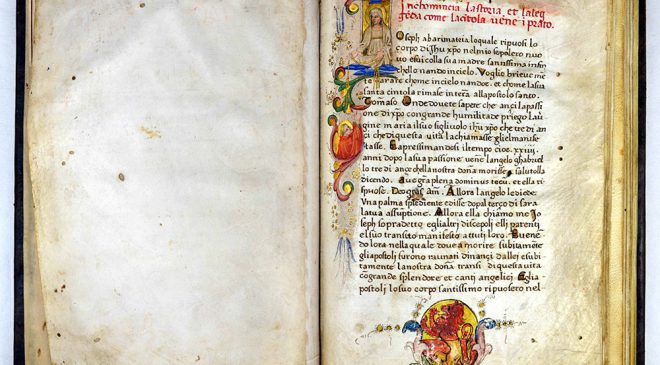 Inchomincia lastoria et laleg
geda come lacitola vene i prato.
Oseph abarimattia loquale ripuosi lo
corpo di Ihu xpo nelmio sepolcro nuo
vo et sui colla sua madre santissima insin
chello nando incielo. Voglio brieve me
te narare chome incielo nandoe. et chome lasua
santa cintola rimase interra allapostolo santo.
Tomaso. Onde dovete sapere che anci lapassi
one di xpo congrande humilitade priego lavir
gine maria il suo figliuolo ihu xpo che tre di an
ci che di questa vita lachiamasse glielmanife
stasse. Eapressimandosi iltempo cioe .xxiiii.
anni dopo lasua passione vene langelo ghabriel
lo tre di ance chella nostra dona morisse. salutolla
dicendo. Ave gra plena dominus tecu. et ella ri
spuose. Deo gras am. Allora langelo lediede
Una palma et disse dopal terço di sara
la tua assuptione. Allora ella chiamo me Jo
seph sopradetto egli altri discepoli elli parenti
el suo transito manifesto attuti loro. E venendo
lora nella quale dovea morire subitamete
gli apostoli furono raunati dinanci dallei esubi
tamente lanostra dona transi di questa vita
cogrande splendore et canti angelici. E gli a
postoli lo suo corpo santissimo ripuosero nel